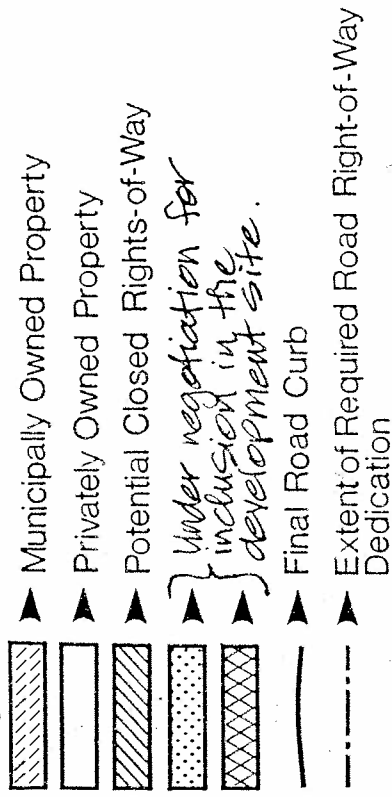 Municipally Owned Property
Privately Owned Property
Potential Closed Rights-of-Way
Under negotiation for
inclusion in the
development site.
Final Road Curb
Extent of Required Road Right-of-Way
Dedication